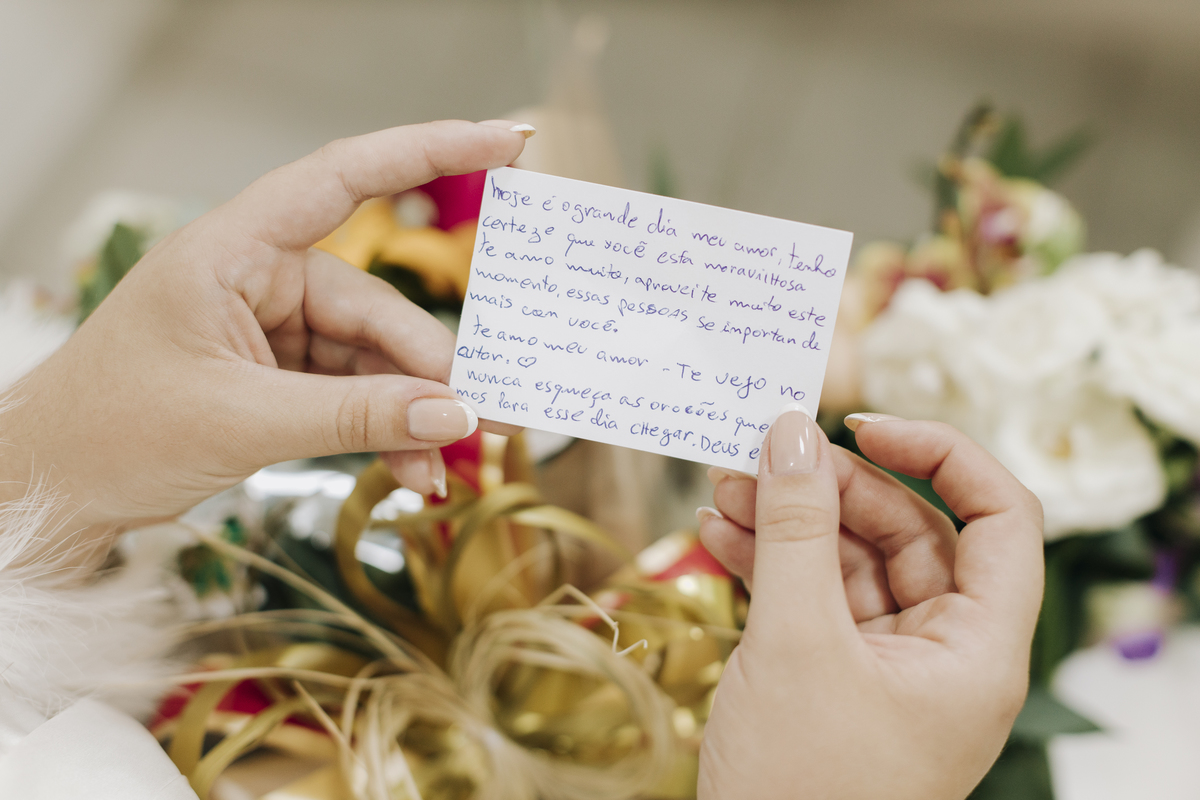 hoje é o grande dia meu amor, tenho
certeze que você esta meravilhosa
te amo muito, aproveite muito este
momento, essas pessoas se importan de
mais com você.
te amo meu amor - Te vejo no
autar. ♡
nunca esqueça as orações que
mos para esse dia chegar. Deus e